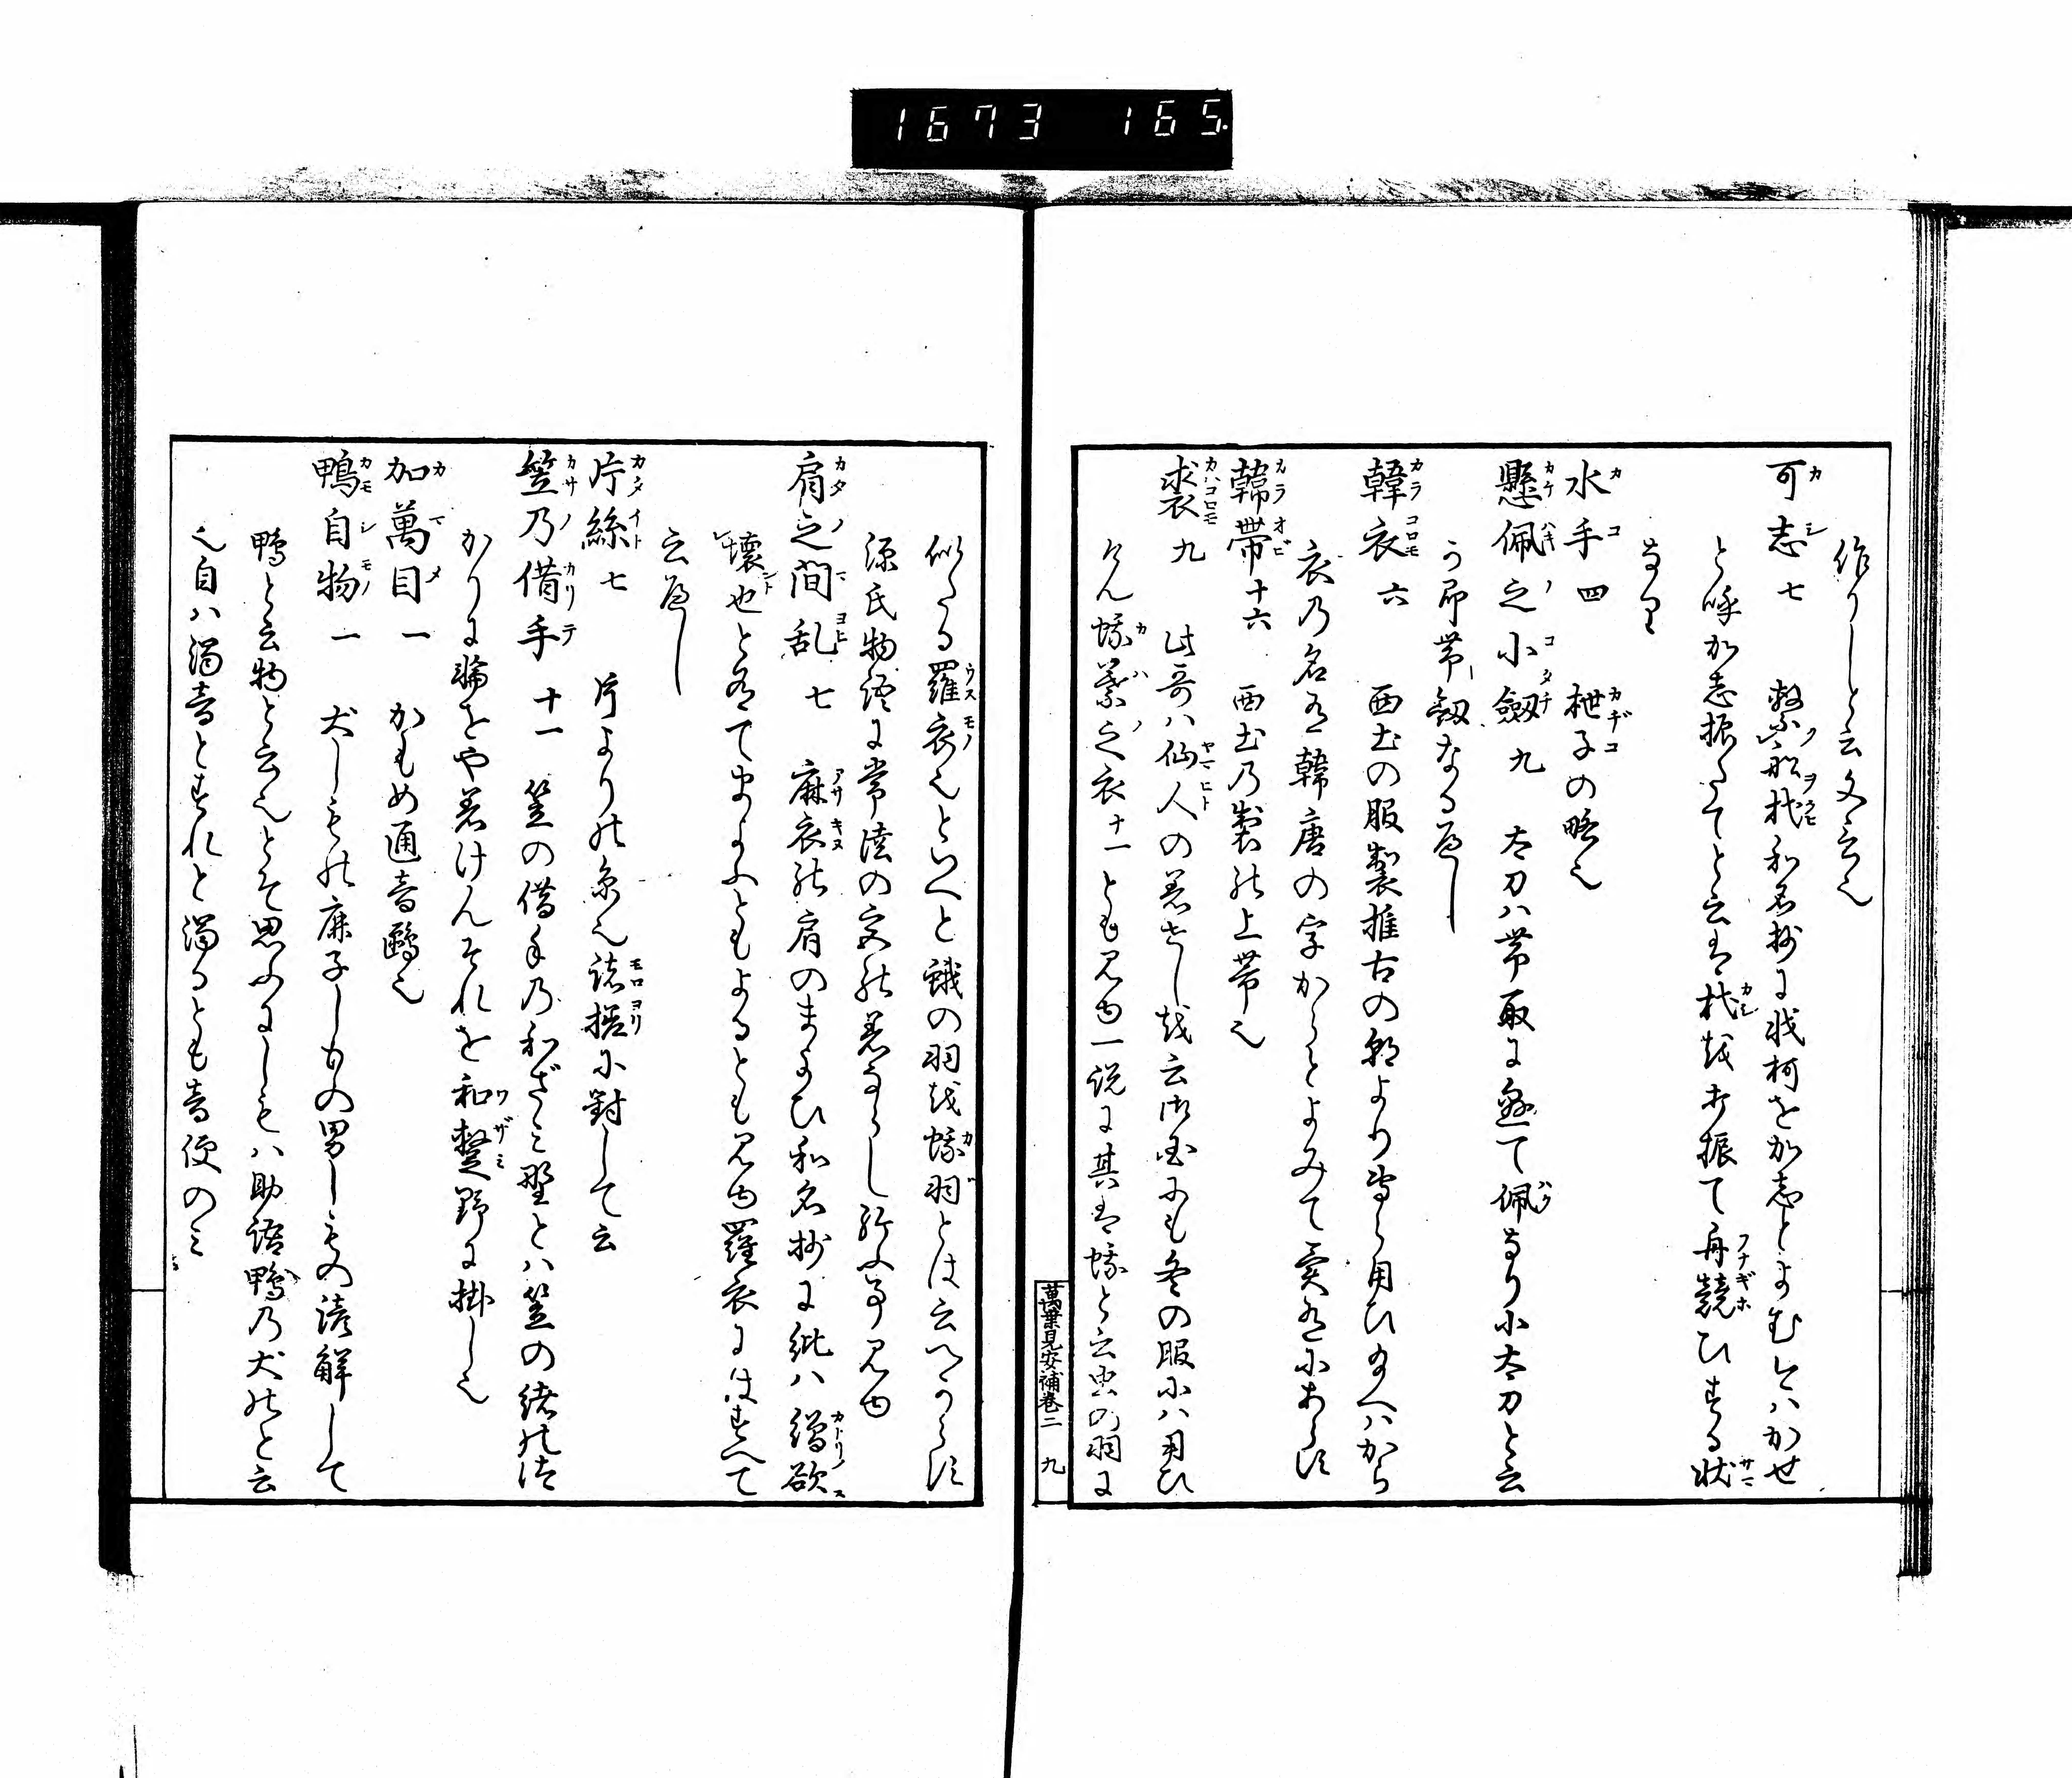 1673 165.
作りしと云文言也
可志 七 繋舩杙和名抄に戕柯をか志とよむ今ハかせ
と呼か志振たてと云は杙を打振て舟競ひする状
なり
水手 四 枻子の略也
懸佩之小劔 九 太刀ハ帯取に懸て佩なり小太刀と云
う即帯劔なるへし
韓衣 六 西土の服製推古の朝より専ら用ひ給へハから
衣乃名有韓唐の字からとよみて実有にあらす
韓帯 十六 西土乃製の上帯也
裘 九 此哥ハ仙人の着せしを云御国にも冬の服にハ用ひ
けん蛾葉之衣十一とも見ゆ一説に其は蛾と云虫の羽に
萬葉見安補巻二 九
似たる羅衣也といへと蛾の羽を蛾羽とは云へからす
源氏物語に常陸の宮の着ならし給ふ事見ゆ
肩之間乱 七 麻衣の肩のまよひ和名抄に紕ハ繒欲
壊也と有てまよふともよるとも見ゆ羅衣にはすへて
云へし
片絲 七 片よりの糸也諸搓に對して云
笠乃借手 十一 笠の借手乃和ざミ野とハ笠の緒のつ
かりに輪をや着けんそれを和蹔野に掛し也
加萬目 一 かもめ通音鷗也
鴨自物 一 犬しもの鹿子しもの男しもの諸解して
鴨と云物と云也とそ思ふにしもハ助語鴨乃犬のと云
也自ハ濁音とすれと濁るとも音便のミ